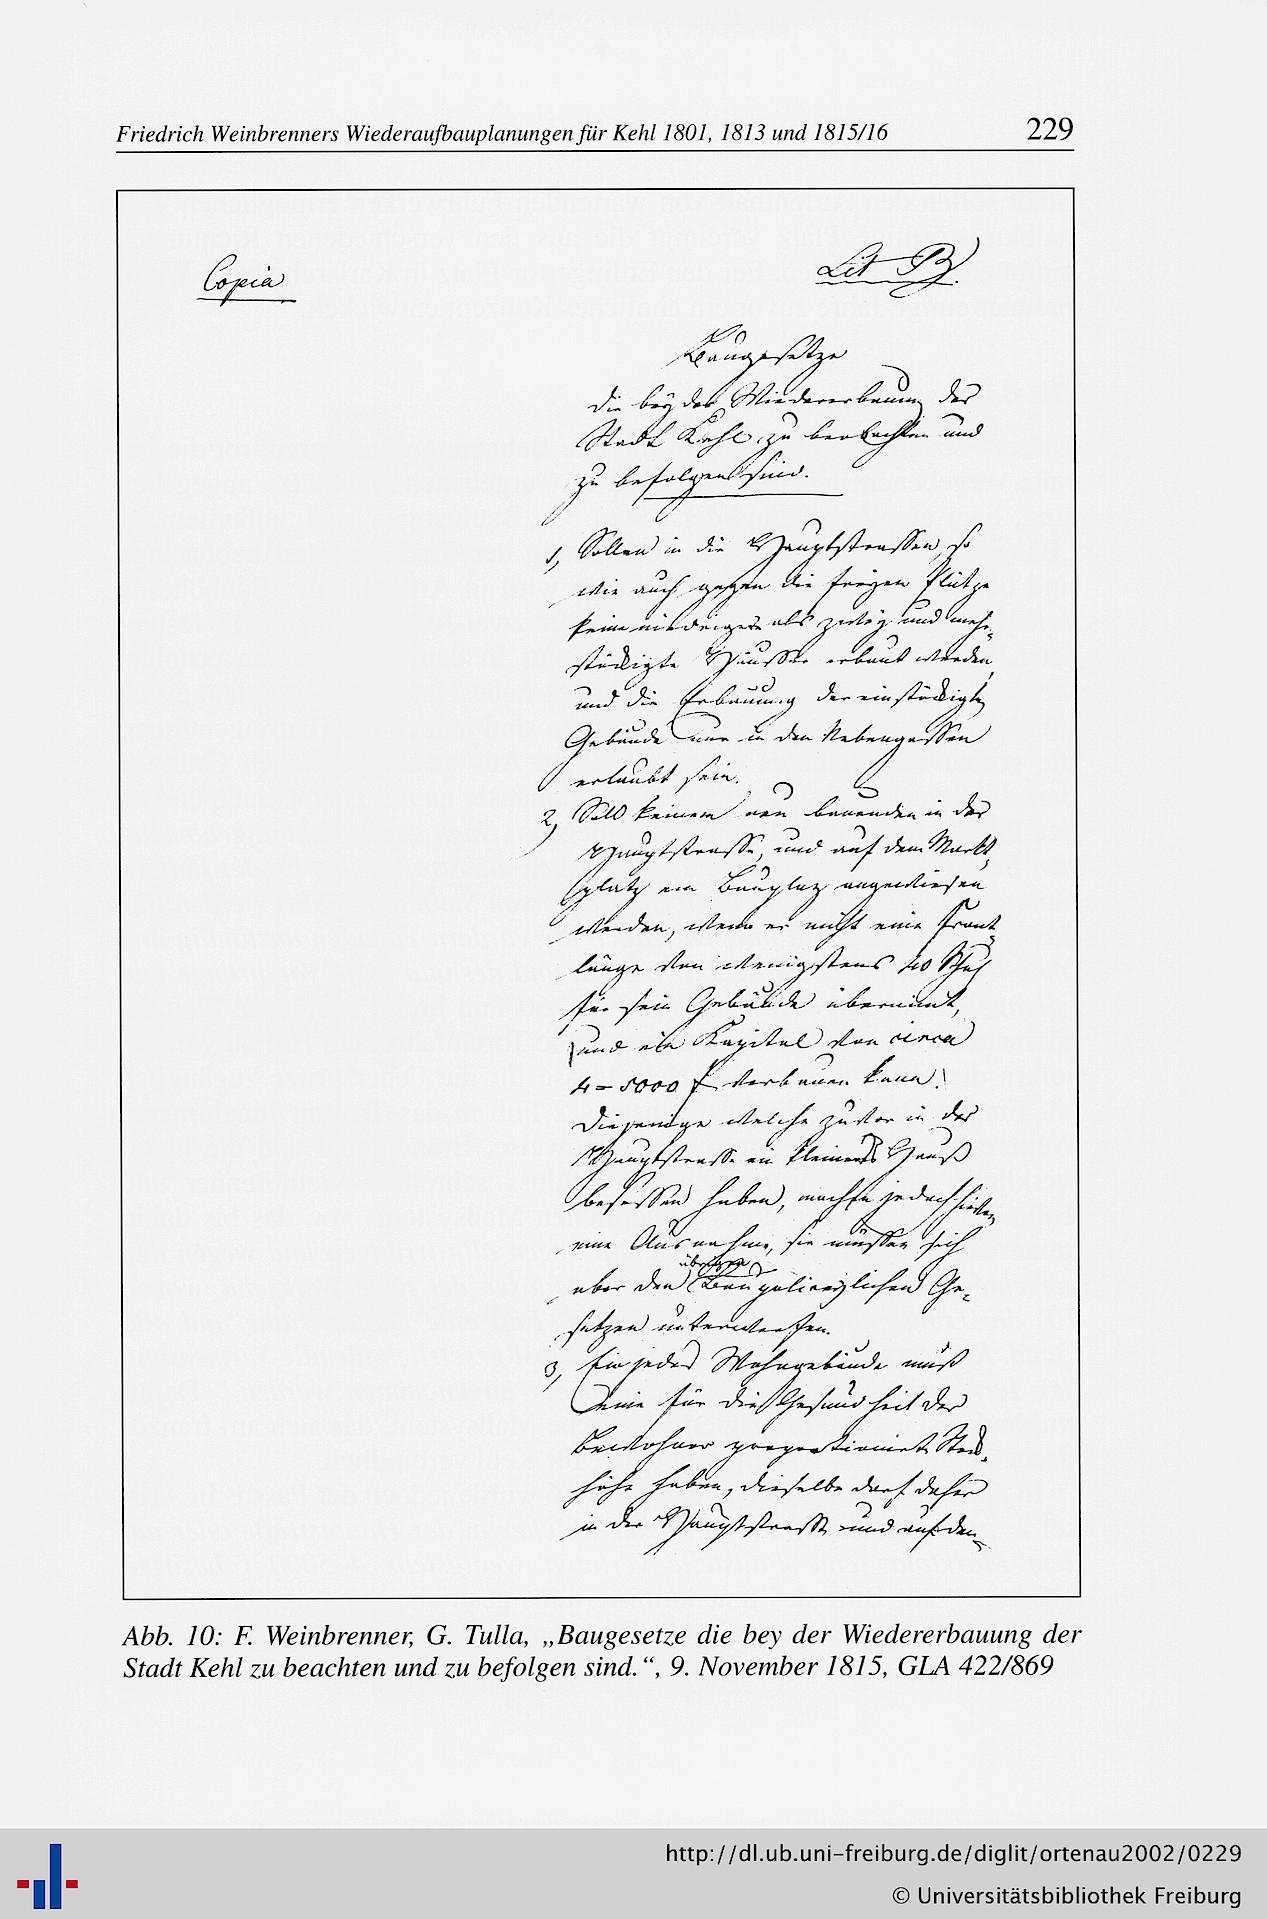 Friedrich Weinbrenners Wiederaufbauplanungen für Kehl 1801, 1813 und 1815/16
229
Copia
Lit B
Baugesetze
die bey der Wiedererbauung der
Stadt Kehl zu beobachten und
zu befolgen sind.
1, Sollen in die Hauptstrassen, so
wie auch gegen die freyen Plätze
keine niedrigere als zwey und mehr
stöckigte Häusser erbaut werden,
und die Erbauung der einstöckigten
Gebäude nur in den Nebengassen
erlaubt sein.
2, Soll keinem neu bauenden in der
Hauptstrasse, und auf dem Markt-
platz ein Bauplaz angewiesen
werden, wenn er nicht eine Front-
länge von wenigstens 40 Schuh
für sein Gebäude übernimt,
und ein Kapital von circa
4 = 5000 f verbauen kann.
Diejenige welche zuvor in der
Hauptstrasse ein kleineres Hauß
besessen haben, machen jedoch hievon
eine Ausnahme, sie müssen sich
aber den übrigen Baupolizeylichen Ge-
setzen unterwerfen.
3, Ein jedes Wohngebäude muß
eine für die Gesundheit der
Bewohner proportionirte Stock-
höhe haben, dieselbe darf daher
in der Hauptstrasse und auf den
Abb. 10: F. Weinbrenner, G. Tulla, „Baugesetze die bey der Wiedererbauung der
Stadt Kehl zu beachten und zu befolgen sind.“, 9. November 1815, GLA 422/869
http://dl.ub.uni-freiburg.de/diglit/ortenau2002/0229
© Universitätsbibliothek Freiburg